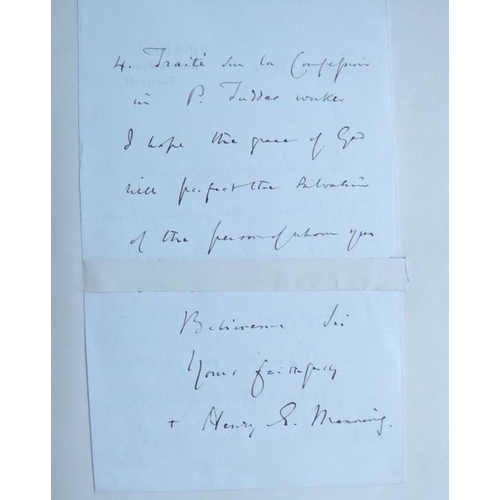 4. Traité sur la Confession
in P.
I hope the grace of God
will perfect the Salvation
of the person of whom you
Believe me Sir
Yours faithfully
+ Henry E. Manning.